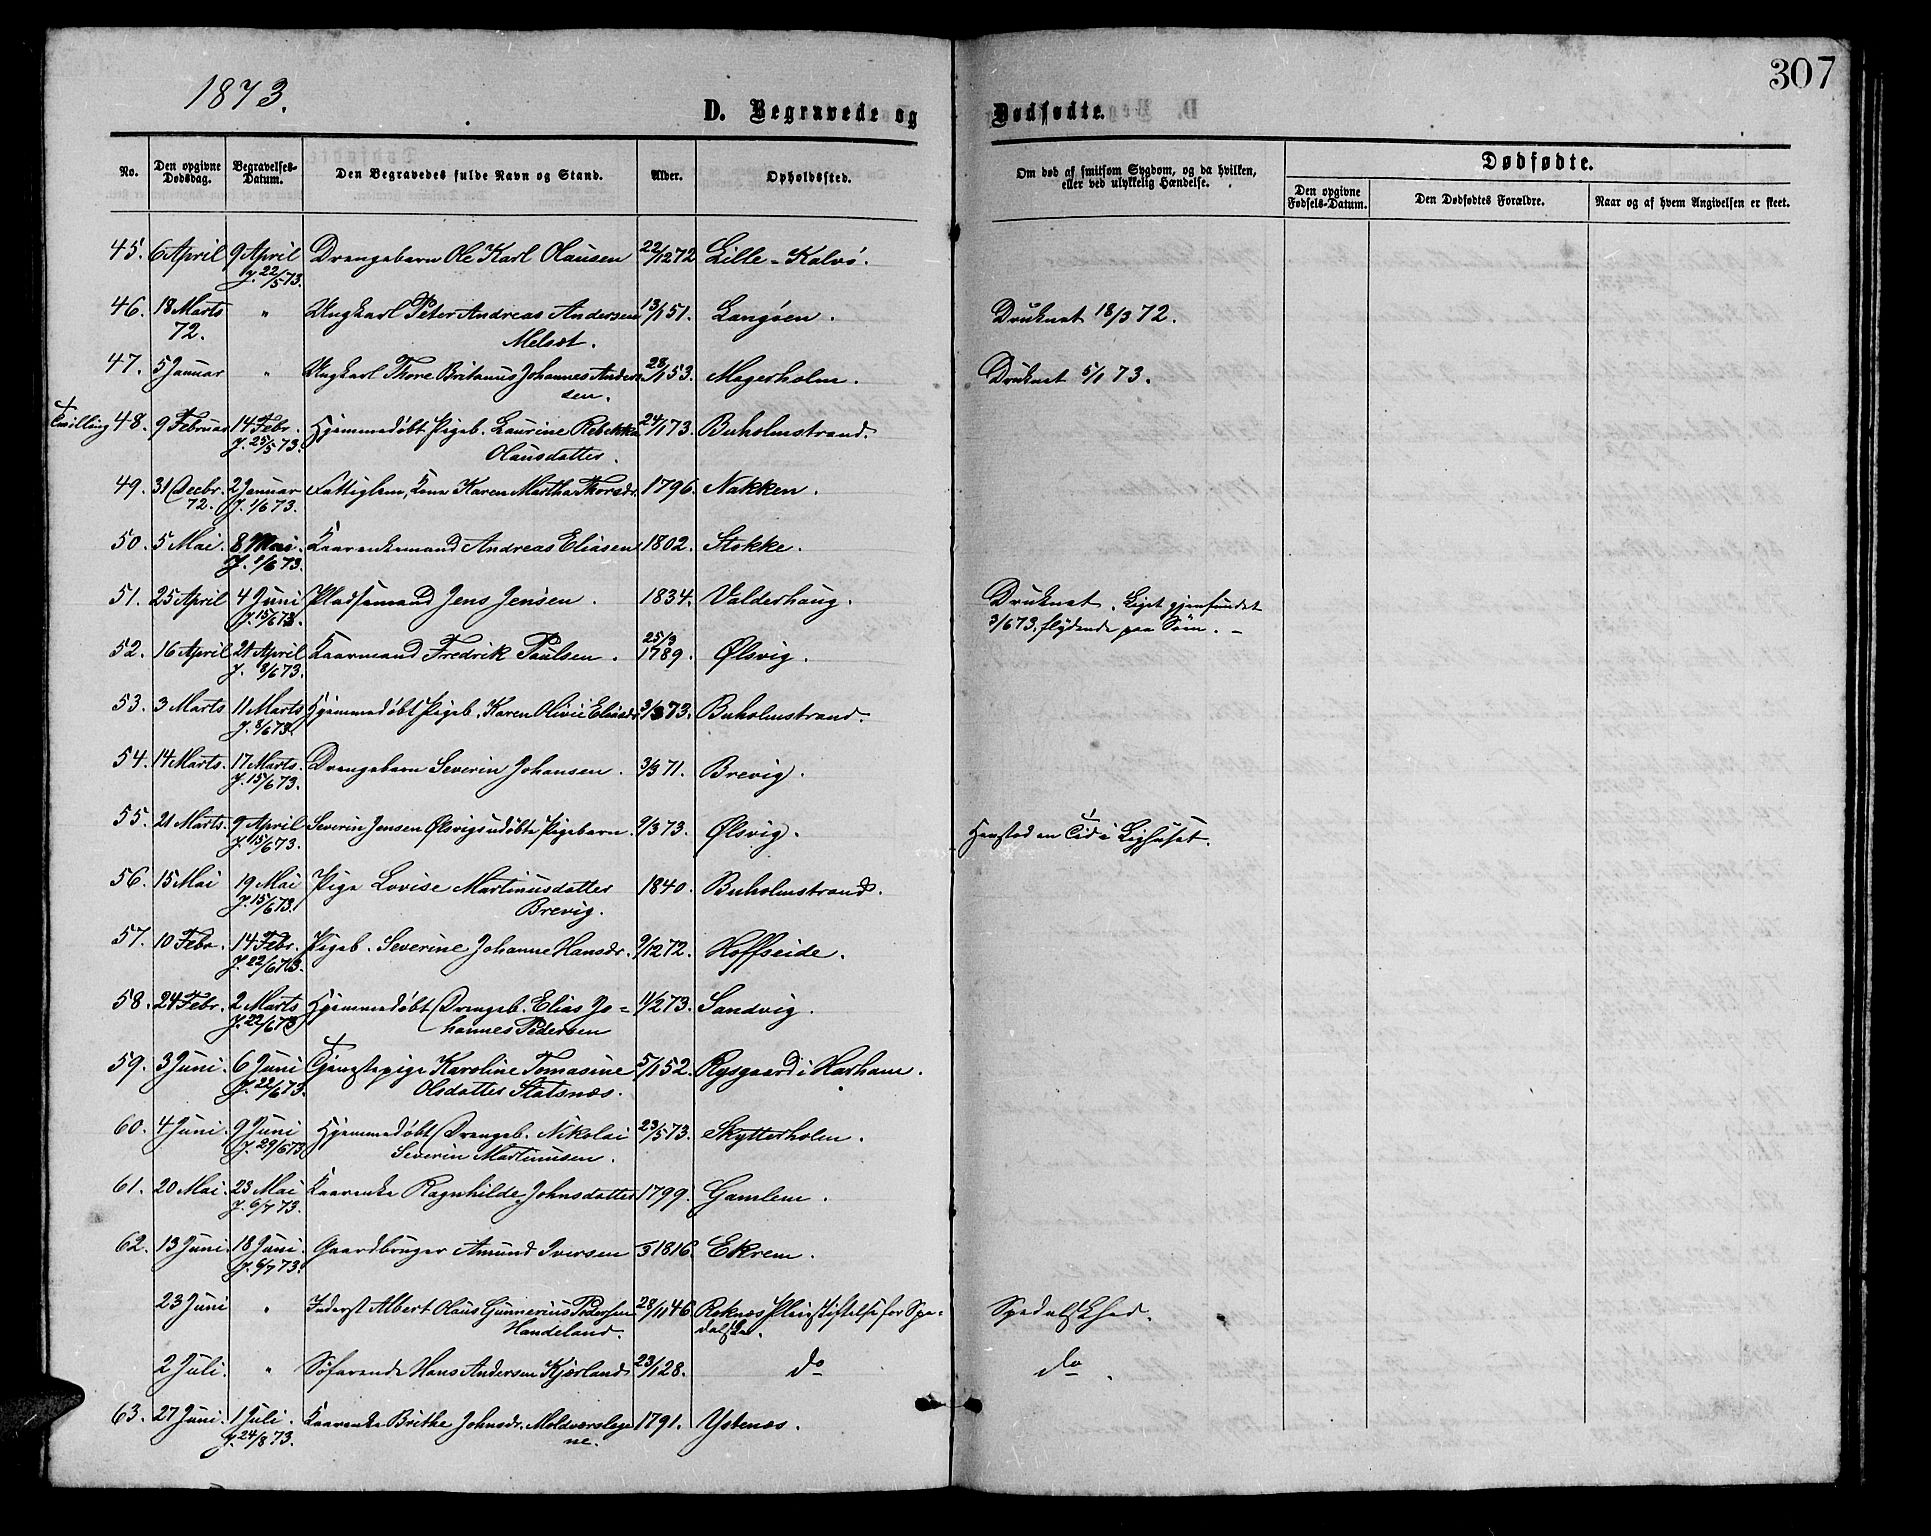 1873.
307
D. Begravede og Dødfødte.
No. Den opgivne Dødsdag. Begravelses-Datum. Den Begravedes fulde Navn og Stand. Alder. Opholdssted. Om død af smitsom Sygdom, og da hvilken, eller ved ulykkelig Hændelse. Dødfødte.
Den opgivne Fødsels-Datum. Den Dødfødtes Forældre. Naar og af hvem Angivelsen er skeet.
45. 6 April 9 April Drengebarn Ole Karl Olausen 22/1272 Lille-Kalvö.
J. 22/5 73.
46. 18 Marts " Ungkarl Peter Andreas Andersen 13/1 51. Langöen. Druknet 18/3 72.
72. Melsæt.
47. 5 Januar " Ungkarl Thore Britanus Johannes Ander- 28/1 53. Magerholm. Druknet 5/1 73.
sen.
Tvilling 48. 9 Februar 14 Febr. Hjemmedøbt Pigeb. Laurine Rebekka 24/1 73. Buholmstrand.
J. 25/5 73. Olausdatter.
49. 31 Decbr. 2 Januar Fattiglem, Kone Karen Martha Thorsdr. 1796. Nakken.
72. J. 1/6 73.
50. 5 Mai. 8 Mai. Kaarenkemand Andreas Eliasen 1802. Stokke.
J. 1/6 73.
51. 25 April 4 Juni Pladsemand Jens Jensen. 1834. Valderhaug. Druknet. Liget gjenfundet
J. 15/6 73. 3/6 73. flydende paa Søen. –
52. 16 April 21 April Kaarmand Fredrik Paulsen. 25/3 1789. Ølsvig.
J. 8/6 73.
53. 3 Marts 11 Marts Hjemmedøbt Pigeb. Karen Olivie Eliasdr. 3/3 73. Buholmstrand.
J. 8/6 73.
54. 14 Marts. 17 Marts. Drengebarn Severin Johansen. 3/3 71. Brevig.
J. 15/6 73.
55. 21 Marts. 9 April Severin Jensen Ølsvigs udöbte Pigebarn. 9/3 73. Ølsvig. Henstod en Tid i Lighuset.
J. 15/6 73.
56. 15 Mai 19 Mai Pige Lovise Martinusdatter 1840. Buholmstrand.
J. 15/6 73. Brevig.
57. 10 Febr. 14 Febr. Pigeb. Severine Johanne Hansdr. 9/12 72. Hoffseide.
J. 22/6 73.
58. 24 Febr. 2 Marts Hjemmedøbt Drengeb. Elias Jo= 11/2 73. Sandvig.
J. 22/6 73 hannes Pedersen
59. 3 Juni. 6 Juni Tjenestepige Karoline Tomasine 5/1 52. Rysgaard i Harham.
J. 22/6 73. Olsdatter Statsnæs.
60. 4 Juni. 9 Juni Hjemmedøbt Drengeb. Nikolai 23/5 73. Skytterholm.
J. 29/6 73 Severin Martinusen.
61. 20 Mai. 23 Mai Kaarenke Ragnhilde Johnsdatter 1799. Gamlem.
J. 6/7 73.
62. 13 Juni. 18 Juni Gaardbruger Amund Iversen 1816. Ekrem.
J. 6/7 73.
23 Juni " Inderst Albert Olaus Gunnerius Pedersen 28/11 46. Reknæs Pleiestiftelse for Spe- Spedalskhed.
Handeland. dalske.
2 Juli. " Söfarende Hans Andersen Kjærland 23/1 28. do do.
63. 27 Juni. 1 Juli. Kaarenke Brithe Johnsdr. Moldværslege 1791. Ystenæs.
J. 24/8 73. ne.